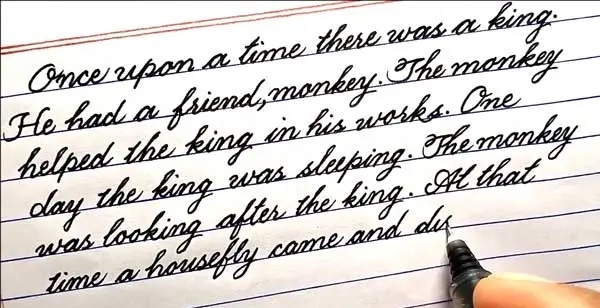 Once upon a time there was a king.
He had a friend, monkey. The monkey
helped the king in his works. One
day the king was sleeping. The monkey
was looking after the king. At that
time a housefly came and dis